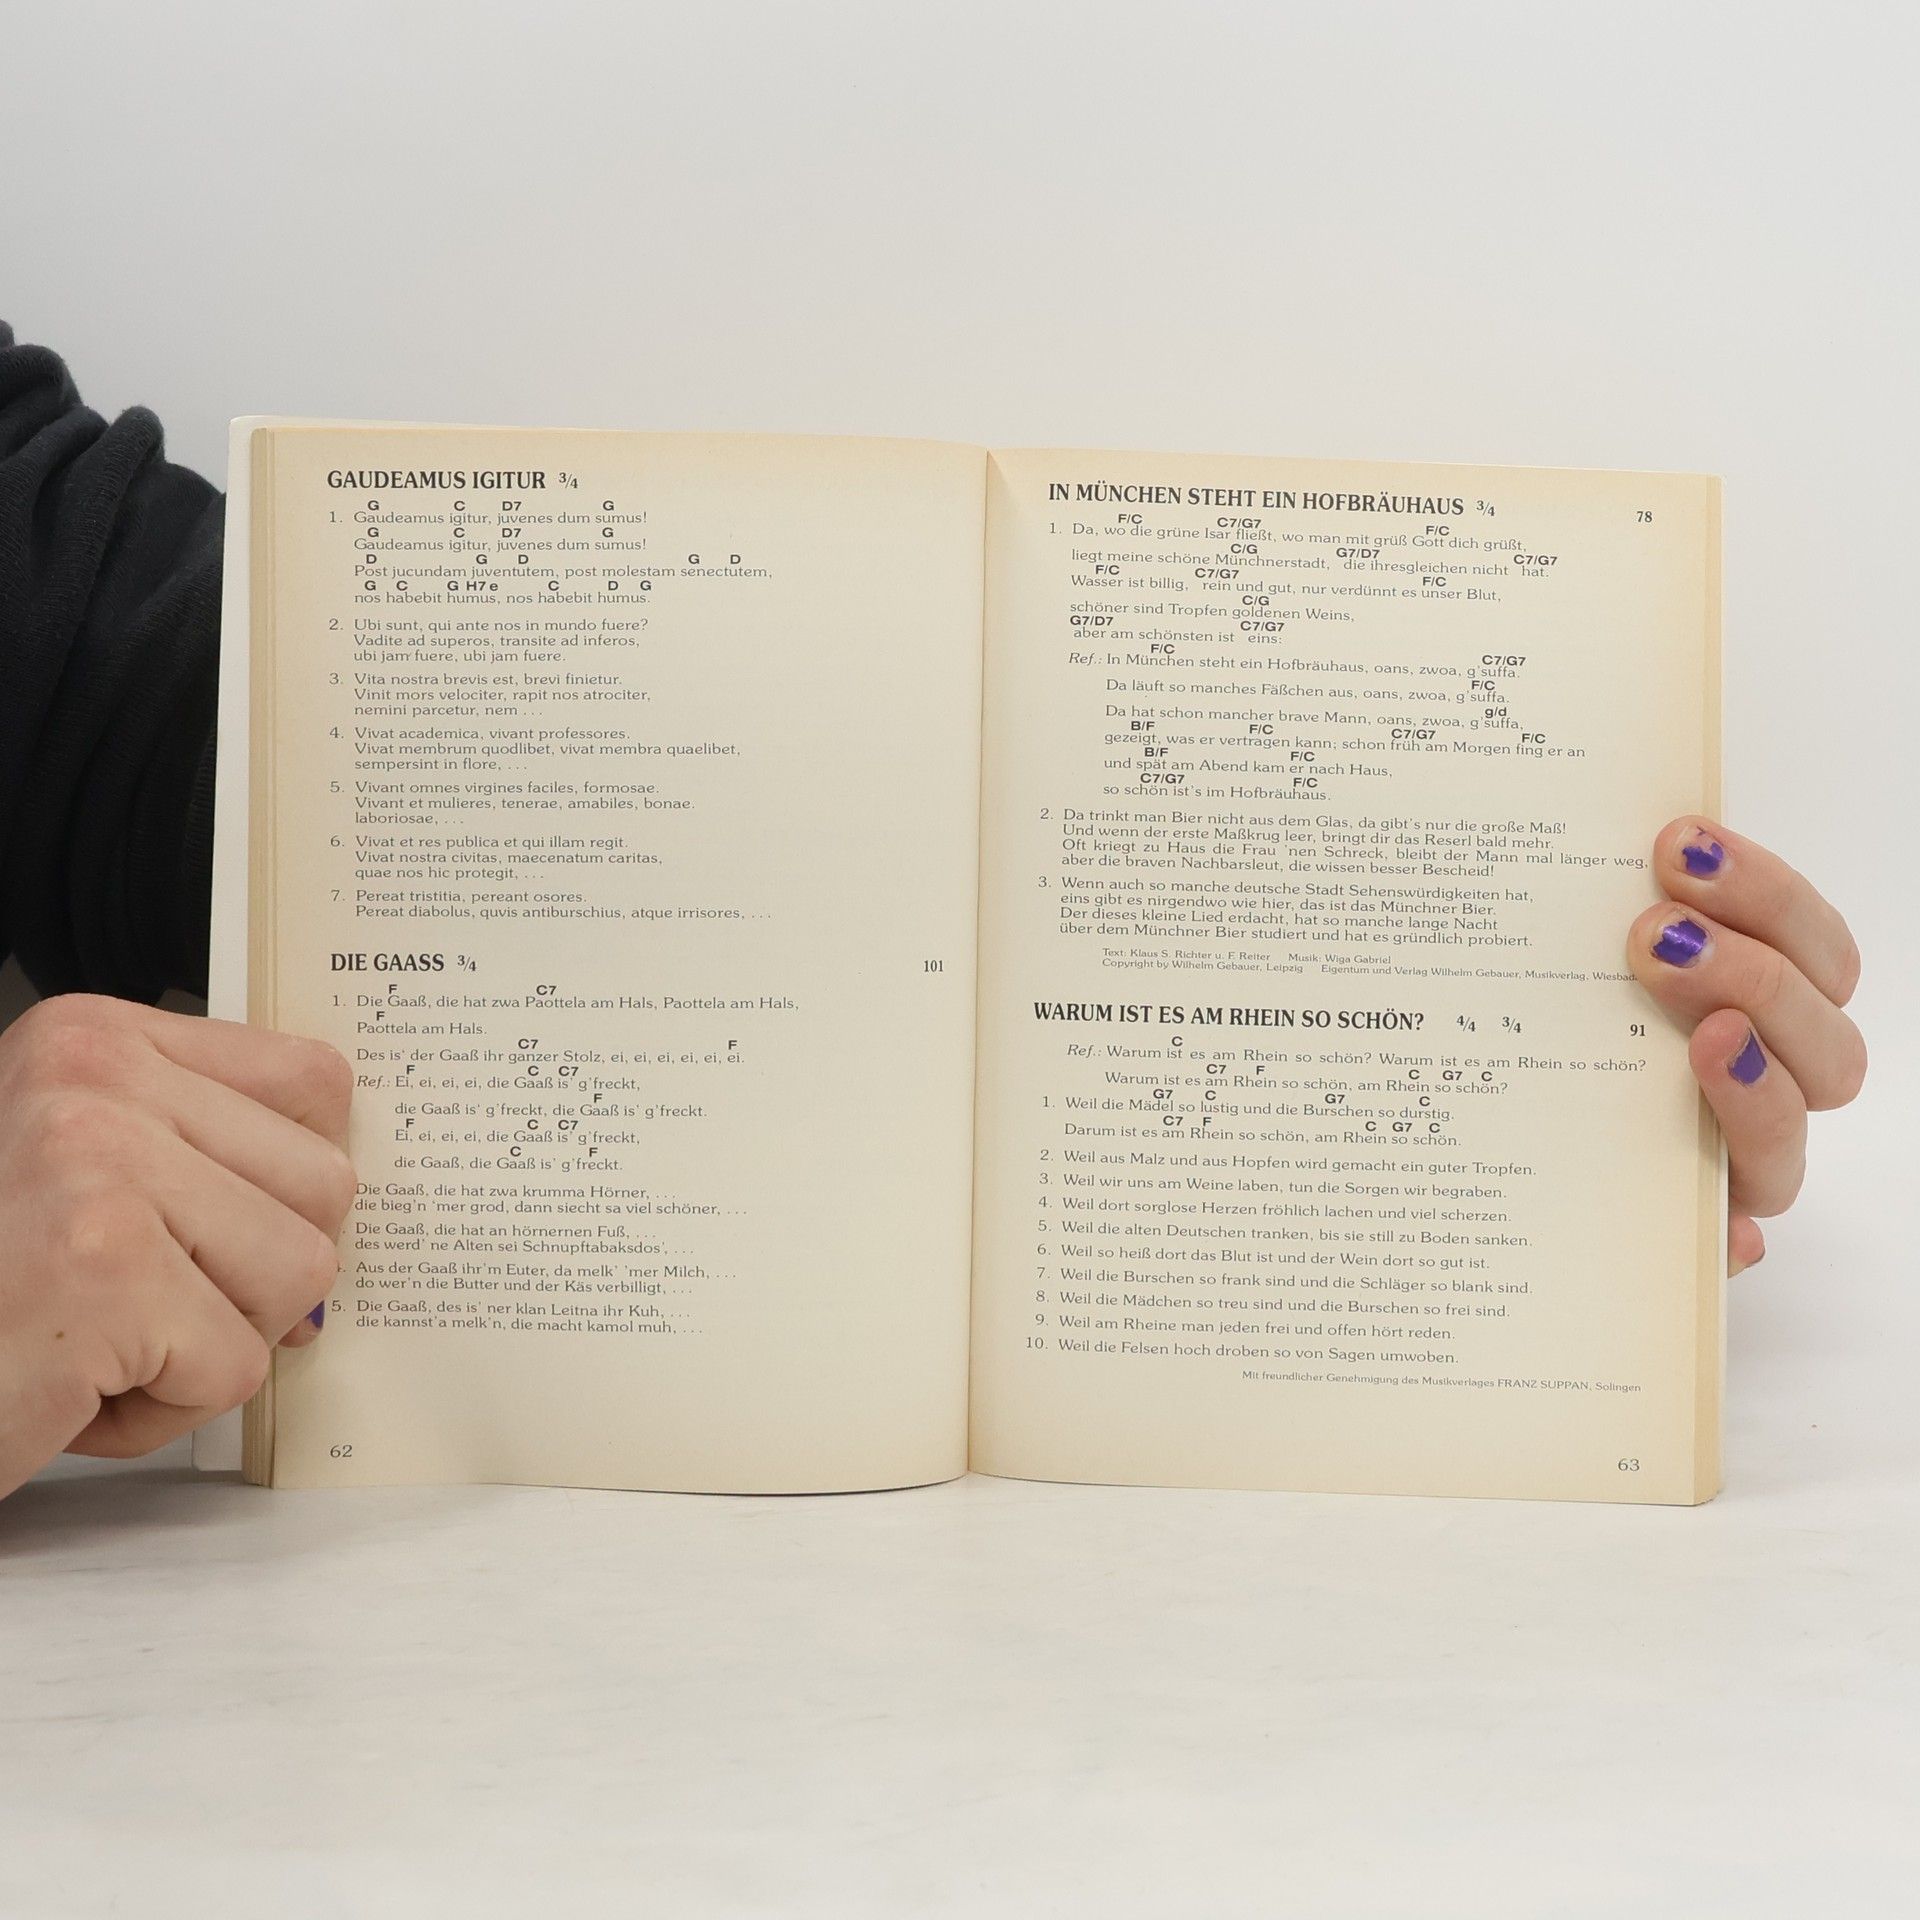 GAUDEAMUS IGITUR 3/4
G C D7 G
1. Gaudeamus igitur, juvenes dum sumus!
G C D7 G
Gaudeamus igitur, juvenes dum sumus!
D G D G D
Post jucundam juventutem, post molestam senectutem,
G C G H7 e C D G
nos habebit humus, nos habebit humus.
2. Ubi sunt, qui ante nos in mundo fuere?
Vadite ad superos, transite ad inferos,
ubi jam fuere, ubi jam fuere.
3. Vita nostra brevis est, brevi finietur.
Vinit mors velociter, rapit nos atrociter,
nemini parcetur, nem ...
4. Vivat academica, vivant professores.
Vivat membrum quodlibet, vivat membra quaelibet,
sempersint in flore, ...
5. Vivant omnes virgines faciles, formosae.
Vivant et mulieres, tenerae, amabiles, bonae.
laboriosae, ...
6. Vivat et res publica et qui illam regit.
Vivat nostra civitas, maecenatum caritas,
quae nos hic protegit, ...
7. Pereat tristitia, pereant osores.
Pereat diabolus, quvis antiburschius, atque irrisores, ...
DIE GAASS 3/4 101
F C7
1. Die Gaaß, die hat zwa Paottela am Hals, Paottela am Hals,
F
Paottela am Hals.
C7 F
Des is' der Gaaß ihr ganzer Stolz, ei, ei, ei, ei, ei, ei.
F C C7
Ref.: Ei, ei, ei, ei, die Gaaß is' g'freckt,
F
die Gaaß is' g'freckt, die Gaaß is' g'freckt.
F C C7
Ei, ei, ei, ei, die Gaaß is' g'freckt,
C F
die Gaaß, die Gaaß is' g'freckt.
Die Gaaß, die hat zwa krumma Hörner, ...
die bieg'n 'mer grod, dann siecht sa viel schöner, ...
. Die Gaaß, die hat an hörnernen Fuß, ...
des werd' ne Alten sei Schnupftabaksdos', ...
4. Aus der Gaaß ihr'm Euter, da melk' 'mer Milch, ...
do wer'n die Butter und der Käs verbilligt, ...
5. Die Gaaß, des is' ner klan Leitna ihr Kuh, ...
die kannst'a melk'n, die macht kamol muh, ...
62
IN MÜNCHEN STEHT EIN HOFBRÄUHAUS 3/4 78
F/C C7/G7 F/C
1. Da, wo die grüne Isar fließt, wo man mit grüß Gott dich grüßt,
C/G G7/D7 C7/G7
liegt meine schöne Münchnerstadt, die ihresgleichen nicht hat.
F/C C7/G7 F/C
Wasser ist billig, rein und gut, nur verdünnt es unser Blut,
C/G
schöner sind Tropfen goldenen Weins,
G7/D7 C7/G7
aber am schönsten ist eins:
F/C C7/G7
Ref.: In München steht ein Hofbräuhaus, oans, zwoa, g'suffa.
F/C
Da läuft so manches Fäßchen aus, oans, zwoa, g'suffa.
g/d
Da hat schon mancher brave Mann, oans, zwoa, g'suffa,
B/F F/C C7/G7 F/C
gezeigt, was er vertragen kann; schon früh am Morgen fing er an
B/F F/C
und spät am Abend kam er nach Haus,
C7/G7 F/C
so schön ist's im Hofbräuhaus.
2. Da trinkt man Bier nicht aus dem Glas, da gibt's nur die große Maß!
Und wenn der erste Maßkrug leer, bringt dir das Reserl bald mehr.
Oft kriegt zu Haus die Frau 'nen Schreck, bleibt der Mann mal länger weg,
aber die braven Nachbarsleut, die wissen besser Bescheid!
3. Wenn auch so manche deutsche Stadt Sehenswürdigkeiten hat,
eins gibt es nirgendwo wie hier, das ist das Münchner Bier.
Der dieses kleine Lied erdacht, hat so manche lange Nacht
über dem Münchner Bier studiert und hat es gründlich probiert.
Text: Klaus S. Richter u. F. Reiter Musik: Wiga Gabriel
Copyright by Wilhelm Gebauer, Leipzig Eigentum und Verlag Wilhelm Gebauer, Musikverlag, Wiesbad
WARUM IST ES AM RHEIN SO SCHÖN? 4/4 3/4 91
C
Ref.: Warum ist es am Rhein so schön? Warum ist es am Rhein so schön?
C7 F C G7 C
Warum ist es am Rhein so schön, am Rhein so schön?
G7 C G7 C
1. Weil die Mädel so lustig und die Burschen so durstig.
C7 F C G7 C
Darum ist es am Rhein so schön, am Rhein so schön.
2. Weil aus Malz und aus Hopfen wird gemacht ein guter Tropfen.
3. Weil wir uns am Weine laben, tun die Sorgen wir begraben.
4. Weil dort sorglose Herzen fröhlich lachen und viel scherzen.
5. Weil die alten Deutschen tranken, bis sie still zu Boden sanken.
6. Weil so heiß dort das Blut ist und der Wein dort so gut ist.
7. Weil die Burschen so frank sind und die Schläger so blank sind.
8. Weil die Mädchen so treu sind und die Burschen so frei sind.
9. Weil am Rheine man jeden frei und offen hört reden.
10. Weil die Felsen hoch droben so von Sagen umwoben.
Mit freundlicher Genehmigung des Musikverlages FRANZ SUPPAN, Solingen
63